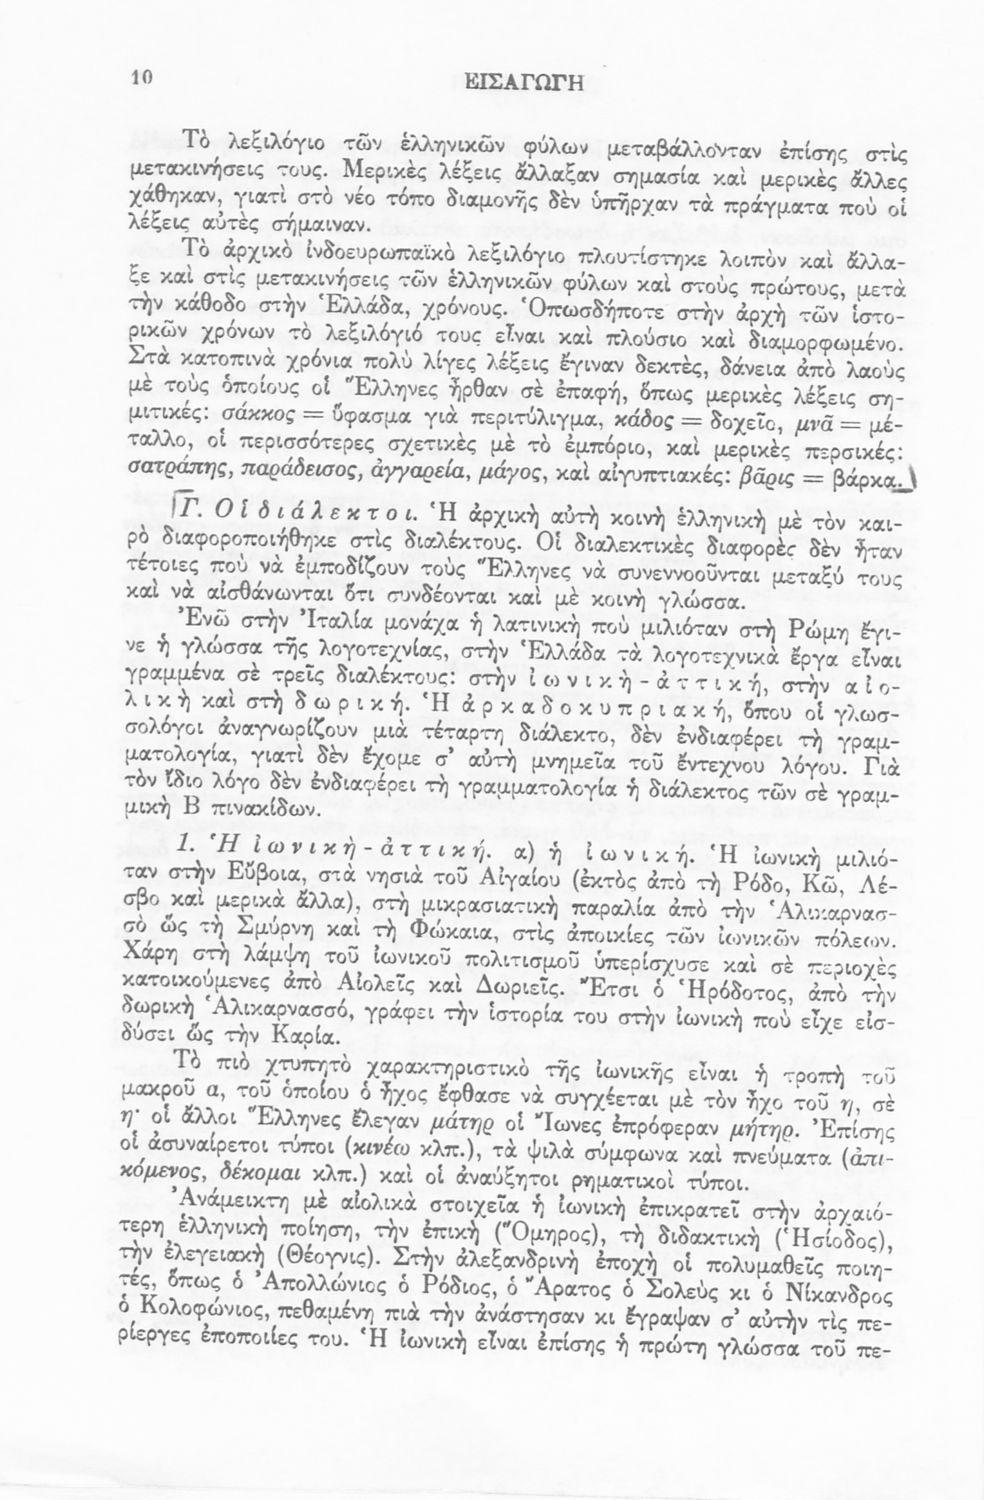 10
ΕΙΣΑΓΩΓΗ
Τὸ λεξιλόγιο τῶν ἑλληνικῶν φύλων μεταβάλλονταν ἐπίσης στὶς
μετακινήσεις τους. Μερικὲς λέξεις ἄλλαξαν σημασία καὶ μερικὲς ἄλλες
χάθηκαν, γιατὶ στὸ νέο τόπο διαμονῆς δὲν ὑπῆρχαν τὰ πράγματα ποὺ οἱ
λέξεις αὐτὲς σήμαιναν.
Τὸ ἀρχικὸ ἰνδοευρωπαϊκὸ λεξιλόγιο πλουτίστηκε λοιπὸν καὶ ἄλλα-
ξε καὶ στὶς μετακινήσεις τῶν ἑλληνικῶν φύλων καὶ στοὺς πρώτους, μετὰ
τὴν κάθοδο στὴν Ἑλλάδα, χρόνους. Ὁπωσδήποτε στὴν ἀρχὴ τῶν ἱστο-
ρικῶν χρόνων τὸ λεξιλόγιό τους εἶναι καὶ πλούσιο καὶ διαμορφωμένο.
Στὰ κατοπινὰ χρόνια πολὺ λίγες λέξεις ἔγιναν δεκτές, δάνεια ἀπὸ λαοὺς
μὲ τοὺς ὁποίους οἱ Ἕλληνες ἦρθαν σὲ ἐπαφή, ὅπως μερικὲς λέξεις ση-
μιτικές: σάκκος = ὕφασμα γιὰ περιτύλιγμα, κάδος = δοχεῖο, μνᾶ = μέ-
ταλλο, οἱ περισσότερες σχετικὲς μὲ τὸ ἐμπόριο, καὶ μερικὲς περσικές:
σατράπης, παράδεισος, ἀγγαρεία, μάγος, καὶ αἰγυπτιακές: βᾶρις = βάρκα.
Γ. Οἱ διάλεκτοι. Ἡ ἀρχικὴ αὐτὴ κοινὴ ἑλληνικὴ μὲ τὸν και-
ρὸ διαφοροποιήθηκε στὶς διαλέκτους. Οἱ διαλεκτικὲς διαφορὲς δὲν ἦταν
τέτοιες ποὺ νὰ ἐμποδίζουν τοὺς Ἕλληνες νὰ συνεννοοῦνται μεταξύ τους
καὶ νὰ αἰσθάνωνται ὅτι συνδέονται καὶ μὲ κοινὴ γλώσσα.
Ἐνῶ στὴν Ἰταλία μονάχα ἡ λατινικὴ ποὺ μιλιόταν στὴ Ρώμη ἔγι-
νε ἡ γλώσσα τῆς λογοτεχνίας, στὴν Ἑλλάδα τὰ λογοτεχνικὰ ἔργα εἶναι
γραμμένα σὲ τρεῖς διαλέκτους: στὴν ἰωνικὴ-ἀττική, στὴν αἰο-
λικὴ καὶ στὴ δωρική. Ἡ ἀρκαδοκυπριακή, ὅπου οἱ γλωσ-
σολόγοι ἀναγνωρίζουν μιὰ τέταρτη διάλεκτο, δὲν ἐνδιαφέρει τὴ γραμ-
ματολογία, γιατὶ δὲν ἔχομε σ' αὐτὴ μνημεῖα τοῦ ἔντεχνου λόγου. Γιὰ
τὸν ἴδιο λόγο δὲν ἐνδιαφέρει τὴ γραμματολογία ἡ διάλεκτος τῶν σὲ γραμ-
μικὴ Β πινακίδων.
1. Ἡ ἰωνικὴ-ἀττική. α) ἡ ἰωνική. Ἡ ἰωνικὴ μιλιό-
ταν στὴν Εὔβοια, στὰ νησιὰ τοῦ Αἰγαίου (ἐκτὸς ἀπὸ τὴ Ρόδο, Κῶ, Λέ-
σβο καὶ μερικὰ ἄλλα), στὴ μικρασιατικὴ παραλία ἀπὸ τὴν Ἁλικαρνασ-
σὸ ὣς τὴ Σμύρνη καὶ τὴ Φώκαια, στὶς ἀποικίες τῶν ἰωνικῶν πόλεων.
Χάρη στὴ λάμψη τοῦ ἰωνικοῦ πολιτισμοῦ ὑπερίσχυσε καὶ σὲ περιοχὲς
κατοικούμενες ἀπὸ Αἰολεῖς καὶ Δωριεῖς. Ἔτσι ὁ Ἡρόδοτος, ἀπὸ τὴν
δωρικὴ Ἁλικαρνασσό, γράφει τὴν ἱστορία του στὴν ἰωνικὴ ποὺ εἶχε εἰσ-
δύσει ὣς τὴν Καρία.
Τὸ πιὸ χτυπητὸ χαρακτηριστικὸ τῆς ἰωνικῆς εἶναι ἡ τροπὴ τοῦ
μακροῦ α, τοῦ ὁποίου ὁ ἦχος ἔφθασε νὰ συγχέεται μὲ τὸν ἦχο τοῦ η, σὲ
η· οἱ ἄλλοι Ἕλληνες ἔλεγαν μάτηρ οἱ Ἴωνες ἐπρόφεραν μήτηρ. Ἐπίσης
οἱ ἀσυναίρετοι τύποι (κινέω κλπ.), τὰ ψιλὰ σύμφωνα καὶ πνεύματα (ἀπι-
κόμενος, δέκομαι κλπ.) καὶ οἱ ἀναύξητοι ρηματικοὶ τύποι.
Ἀνάμεικτη μὲ αἰολικὰ στοιχεῖα ἡ ἰωνικὴ ἐπικρατεῖ στὴν ἀρχαιό-
τερη ἑλληνικὴ ποίηση, τὴν ἐπικὴ (Ὅμηρος), τὴ διδακτικὴ (Ἡσίοδος),
τὴν ἐλεγειακὴ (Θέογνις). Στὴν ἀλεξανδρινὴ ἐποχὴ οἱ πολυμαθεῖς ποιη-
τές, ὅπως ὁ Ἀπολλώνιος ὁ Ρόδιος, ὁ Ἄρατος ὁ Σολεὺς κι ὁ Νίκανδρος
ὁ Κολοφώνιος, πεθαμένη πιὰ τὴν ἀνάστησαν κι ἔγραψαν σ' αὐτὴν τὶς πε-
ρίεργες ἐποποιίες του. Ἡ ἰωνικὴ εἶναι ἐπίσης ἡ πρώτη γλώσσα τοῦ πε-